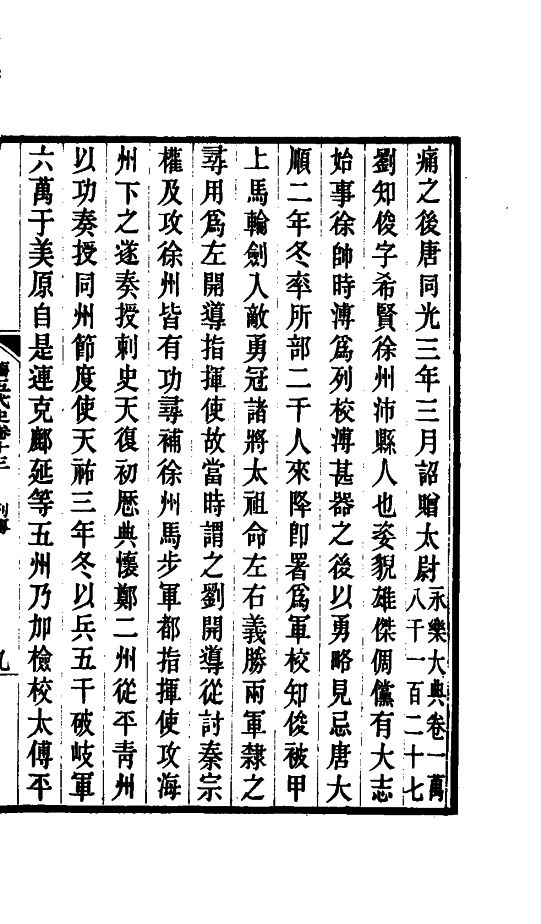 痛之後唐同光三年三月詔贈太尉永樂大典卷一萬八千一百二十七
劉知俊字希賢徐州沛縣人也姿貌雄傑倜儻有大志
始事徐帥時溥爲列校溥甚器之後以勇略見忌唐大
順二年冬率所部二千人來降卽署爲軍校知俊被甲
上馬輪劍入敵勇冠諸將太祖命左右義勝兩軍隸之
尋用爲左開導指揮使故當時謂之劉開導從討秦宗
權及攻徐州皆有功尋補徐州馬步軍都指揮使攻海
州下之遂奏授刺史天復初歷典懷鄭二州從平青州
以功奏授同州節度使天祐三年冬以兵五千破岐軍
六萬于美原自是連克鄜延等五州乃加檢校太傅平
舊五代史卷十三 列傳 九